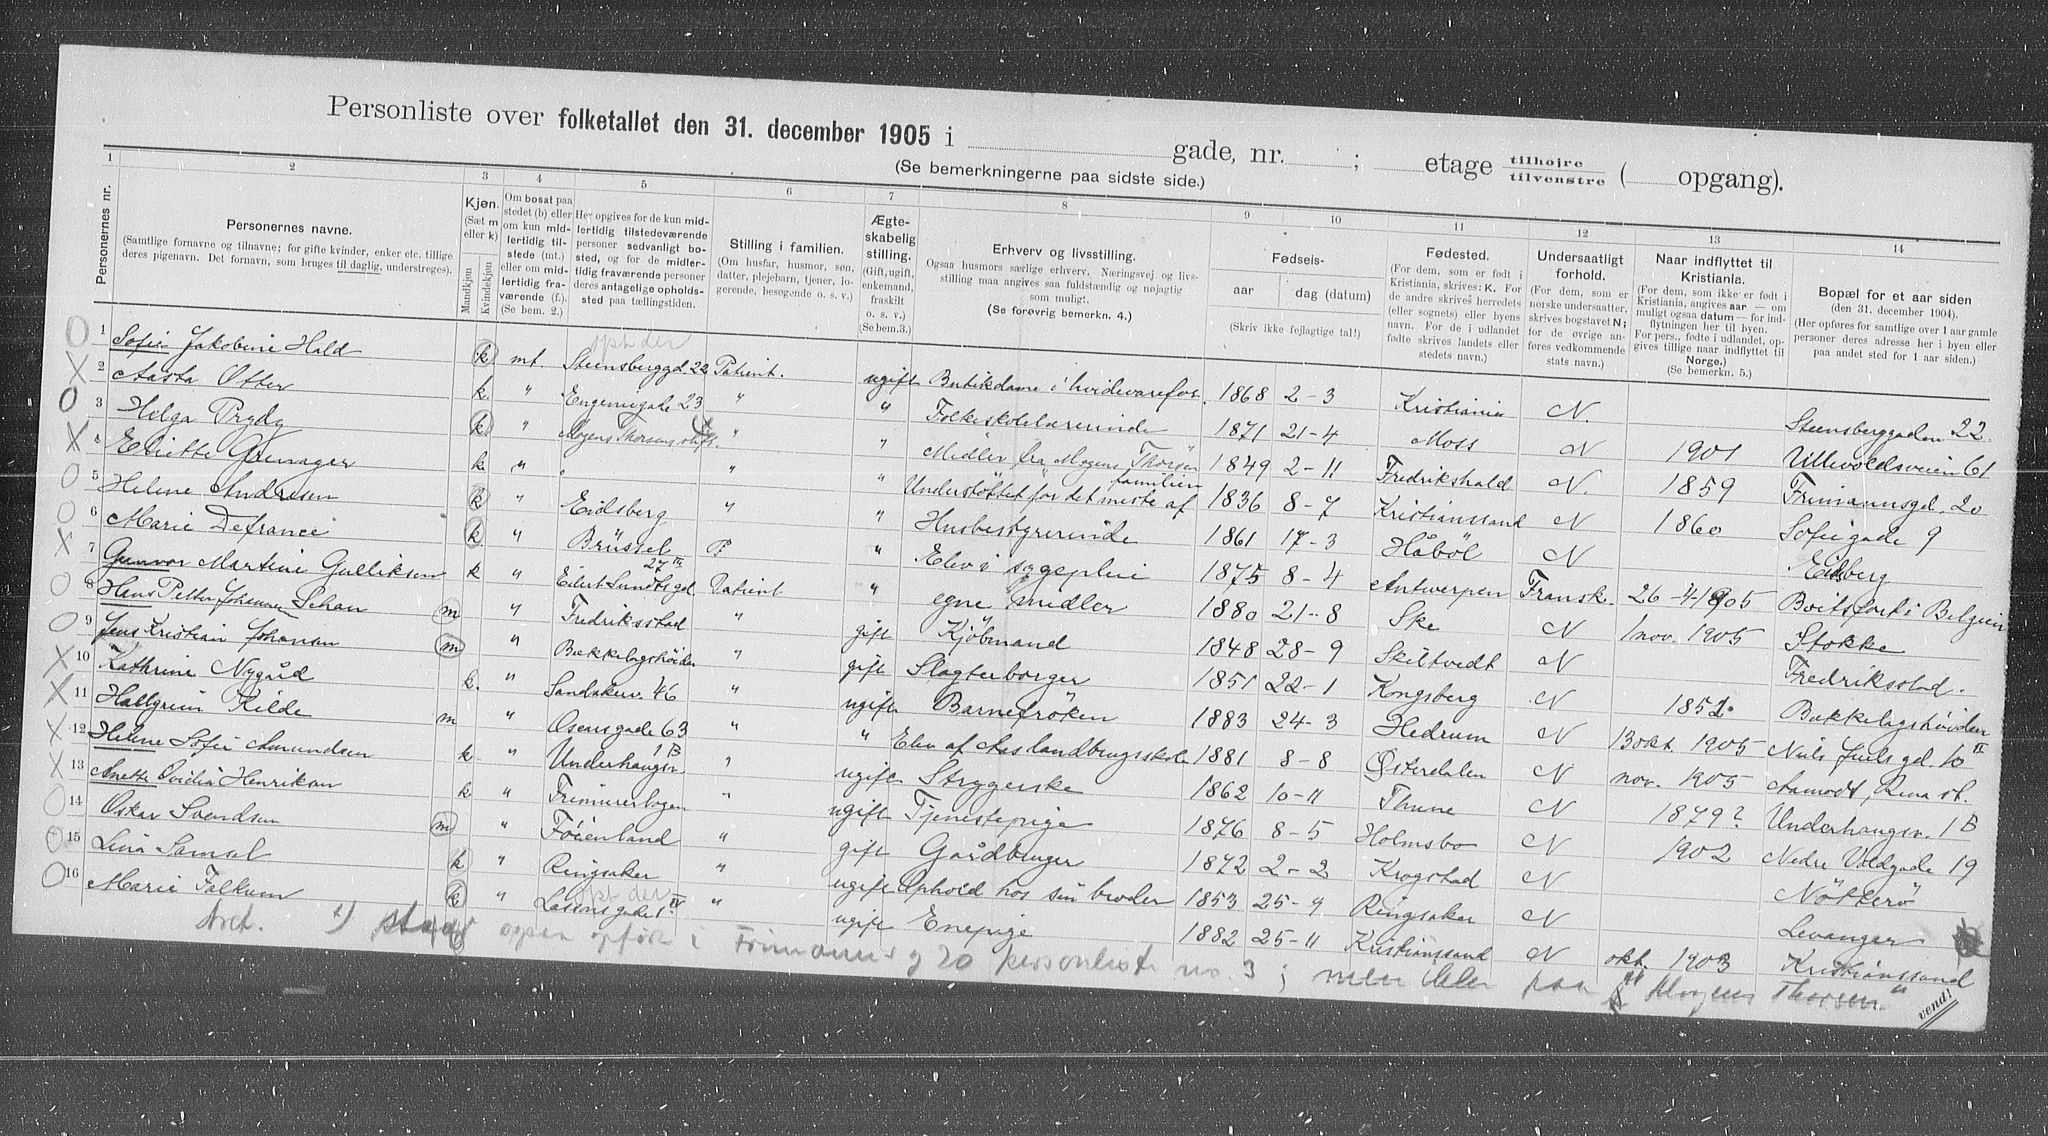 Personliste over folketallet den 31. december 1905 i gade, nr. ; etage tilhøjre tilvenstre ( opgang).
(Se bemerkningerne paa sidste side.)
1 2 3 4 5 6 7 8 9 10 11 12 13 14
Personernes nr.
Personernes navne.
(Samtlige fornavne og tilnavne; for gifte kvinder, enker etc. tillige
deres pigenavn. Det fornavn, som bruges til daglig, understreges).
Kjøn.
(Sæt m
eller k)
Mandkjøn
Kvindekjøn
Om bosat paa
stedet (b) eller
om kun mid-
lertidig til-
stede (mt.)
eller om mid-
lertidig fra-
værende (f.).
(Se bem. 2.)
Her opgives for de kun mid-
lertidig tilstedeværende
personer sedvanlig bo-
sted, og for de midler-
tidig fraværende personer
deres antagelige opholds-
sted paa tællingstiden.
Stilling i familien.
(Om husfar, husmor, søn,
datter, plejebarn, tjener, lo-
gerende, besøgende o. s. v.)
Ægte-
skabelig
stilling.
(Gift, ugift,
enkemand,
fraskilt
o. s. v.)
(Se bem. 3.)
Erhverv og livsstilling.
Ogsaa husmors særlige erhverv. Næringsvej og livs-
stilling maa angives saa fuldstændig og nøjagtig
som muligt.
(Se forøvrig bemerkn. 4.)
Fødsels-
aar dag (datum)
(Skriv ikke fejlagtige tal!)
Fødested.
(For dem, som er født i
Kristiania, skrives: K. For
de andre skrives herredets
(eller sognets) eller byens
navn. For de i udlandet
fødte skrives landets eller
stedets navn.)
Undersaatligt
forhold.
(For dem, som er
norske undersaatter,
skrives bogstavet N;
for de øvrige an-
føres vedkommende
stats navn.)
Naar indflyttet til
Kristiania.
(For dem, som ikke er født i
Kristiania, angives aar — om
muligt ogsaa datum — for ind-
flytningen her til byen.
For pers., fødte i udlandet, op-
gives tillige naar indflyttet til
Norge.)
(Se bemerkn. 5.)
Bopæl for et aar siden
(den 31. december 1904).
(Her opføres for samtlige over 1 aar gamle
personer deres adresse her i byen eller
paa andet sted for 1 aar siden.)
1 Sofie Jakobine Hald k mt. Steensberggd 22 Patient. ugift Butikdame i hvidevarefor. 1868 2-3 Kristiania N. Steensberggaden 22.
2 Aasta Otter k. " Engenisgade 23 " " Folkeskolelærerinde 1871 21-4 Moss N 1901 Ullevoldsveien 61
3 Helga Prydz k. " Mogens Thorsens stift. " " Midler fra Mogens Thorsen 1849 2-11 Fredrikshald N. 1859 Frimannsgd. 20
familien
4 k " " " Understöttet for det meste af 1836 8-7 Kristianssand N 1860 Sofiegade 9
5 Helene Andresen k " Eidsberg " " Husbestyrerinde 1861 17-3 Håböl N Eidsberg
6 Marie Defrance k. " Brüssel P. " Elev i sygepleie 1875 8-4 Antwerpen Fransk. 26-4 1905 Boitsfort i Belgien
7 Gunvor Martine Gulliksen k " Eilert Sundts gd. 27 III Patient " egne midler 1880 21-8 Ske N 1 nov. 1905 Stokke
8 Hans Petter Johannes m " Fredriksstad " gift Kjöbmand 1848 28-9 Skiltvedt N Fredriksstad.
9 Jens Kristian Johansen m " Bækkelagshöiden " gift Slagterborger 1851 22-1 Kongsberg N 1852. Bækkelagshöiden
10 Kathrine Nygård k. " Sandakerv. 46 " ugift Barnefröken 1883 24-3 Hedrum N 13 okt. 1905 Niels Juels gd. 10 II
11 Hallgrim Kilde m " Osensgade 63 " " Elev af Aas landbrugsskole 1881 8-8 Østerdalen N nov. 1905 Aamodt, Rena st.
12 Helene Sofie Amundsen k. " Underhaugsv. 1B " ugift Strygerske 1862 10-11 Thune N 1879? Underhaugsv. 1B
13 Anette Ovidia Henriksen k " Frimurerlogen " ugift Tjenestepige 1876 8-5 Holmsbo N 1902 Nedre Voldgade 19
14 Oskar Svendsen m " Föienland " gift Gårdbruger 1872 2-2 Krogstad N Nötterö
15 Lina k " Ringsaker " ugift Ophold hos sin broder 1853 25-9 Ringsaker N Levanger
16 Marie Falkum k " Lassonsgade 1 IV " ugift Enepige 1882 25-11 Kristianssand N okt. 1903 Kristianssand
ogsaa opført i Frimannsg 20 personliste no. 3; men paa Mogens Thorsen"
vend!